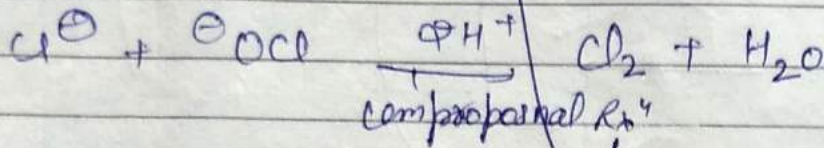 Cl⊖ + ⊖OCl ⊕H+ Cl2 + H2O
comproportional Rxn